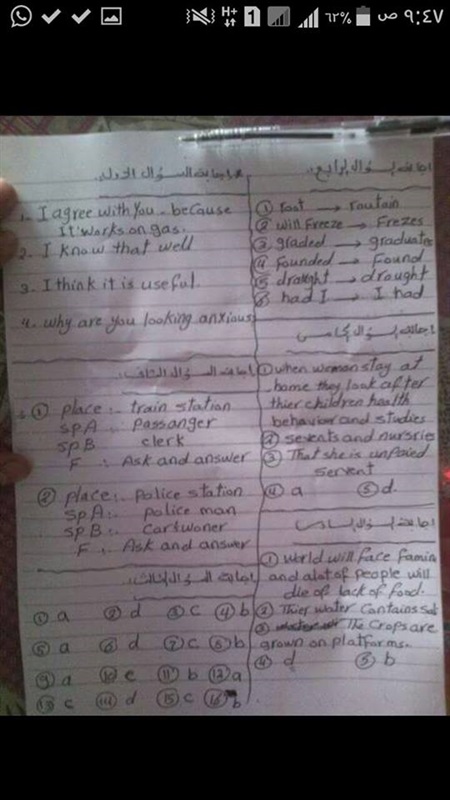 H+ 1 ٦٢% ٩:٤٧ ص
اجابة السؤال الاول
1. I agree with you. because
It works on gas.
2. I know that well
3. I think it is useful.
4. why are you looking anxious
① place:. train station
SPA:. Passanger
SPB clerk
F:. Ask and answer
② place:. Police station
SPA:. police man
SPB:. cartwoner
F:. Ask and answer
اجابة السؤال الثالث
① a ② d ③ c ④ b
⑤ a ⑥ d ⑦ c ⑧ b
⑨ a ⑩ e ⑪ b ⑫ a
⑬ c ⑭ d ⑮ c ⑯ b
اجابة سؤال رابع
① root → routain
② will Freeze → Frezes
③ graded → graduates
④ Founded → Found
⑤ draught → drought
⑥ had I → I had
① when woman stay at
home they look after
thier children health
behavior and studies
② sevents and nursries
③ That she is unpaied
servent
④ a ⑤ d.
① World will face famin
and alot of people will
die of lack of food.
② Thier water Contains salt
③ The Crops are
grown on platforms.
④ d ⑤ b